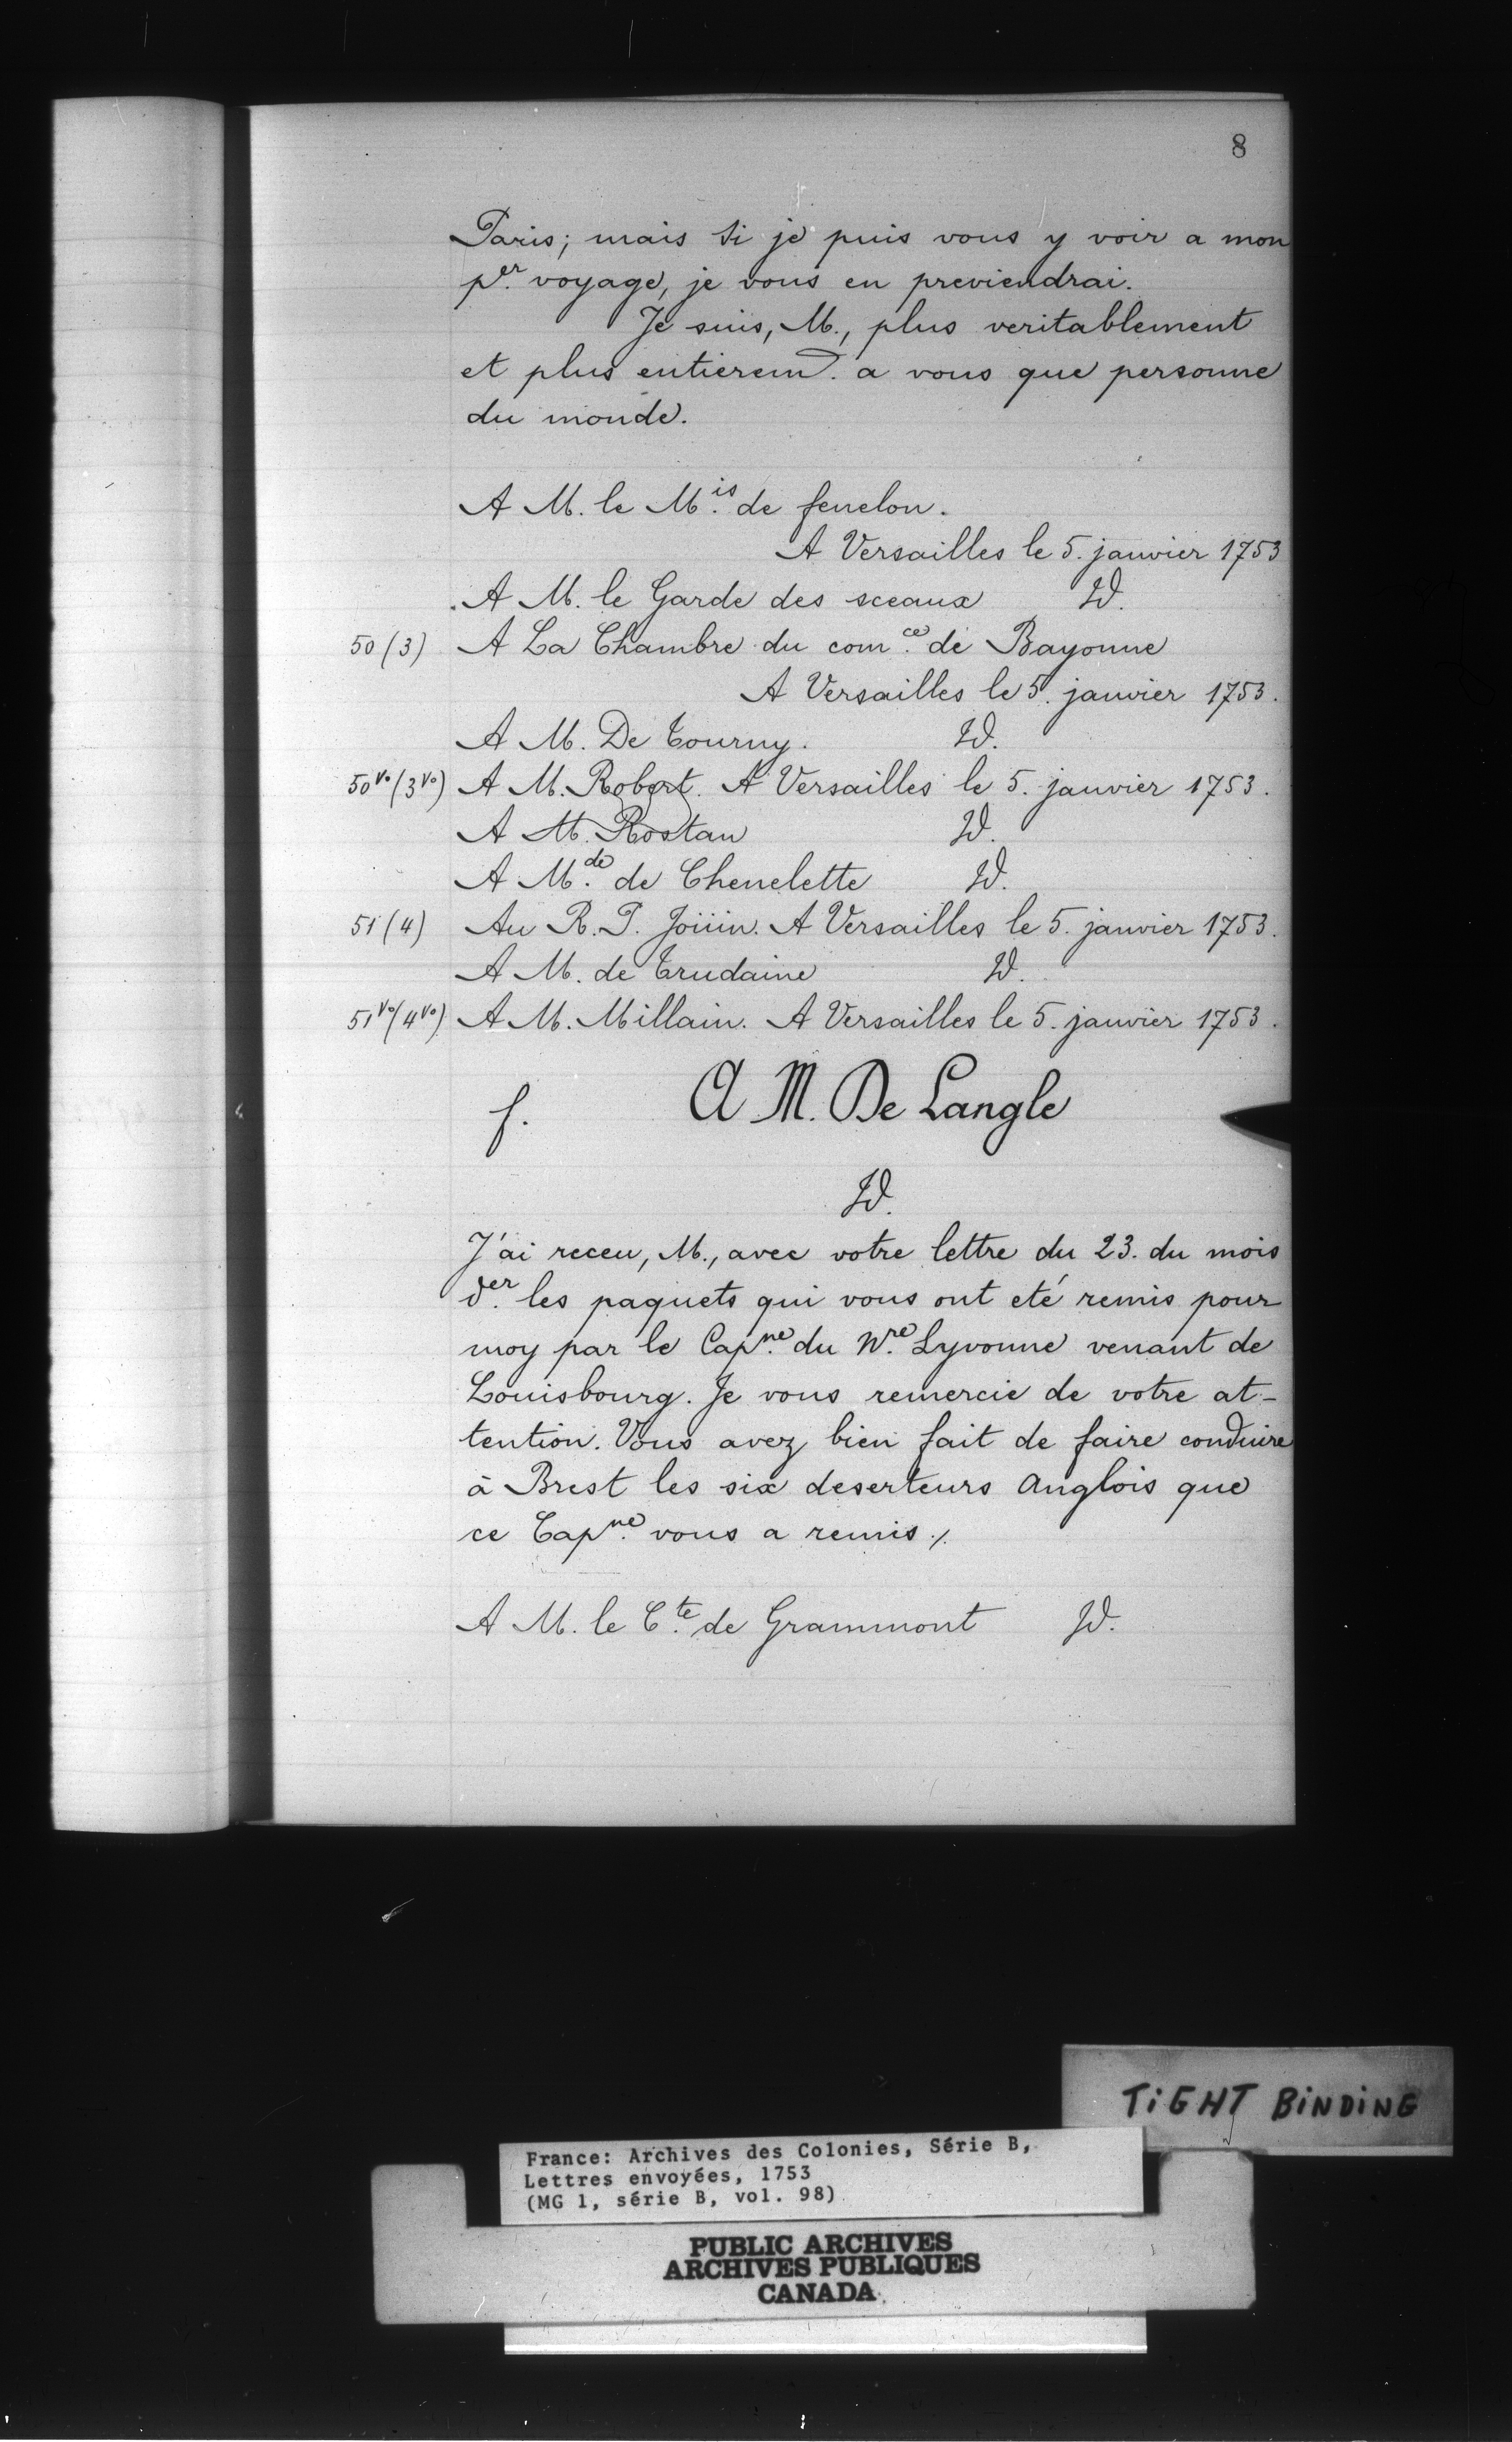 8
Paris; mais si je puis vous y voir a mon
p.er voyage, je vous en previendrai.
Je suis, M., plus veritablement
et plus entierem.t a vous que personne
du monde.
A M. le M.is de fenelon.
A Versailles le 5. janvier 1753
A M. le Garde des sceaux Id.
50 (3) A La Chambre du com.ce de Bayonne
A Versailles le 5. janvier 1753.
A M. De Tourny. Id.
50vo (3vo) A M. Robert. A Versailles le 5. janvier 1753.
A M. Rostan Id.
A M.de de Chenelette Id.
51 (4) Au R. P. Joüin. A Versailles le 5. janvier 1753.
A M. de Trudaine Id.
51vo (4vo) A M. Millain. A Versailles le 5. janvier 1753.
f. A M. De Langle
Id.
J'ai receu, M., avec votre lettre du 23. du mois
d.er les paquets qui vous ont eté remis pour
moy par le Cap.ne du N.re Lyvonne venant de
Louisbourg. Je vous remercie de votre at-
tention. Vous avez bien fait de faire conduire
à Brest les six deserteurs Anglois que
ce Cap.ne vous a remis ./.
A M. le C.te de Grammont Id.
TiGHT BiNDiNG
France: Archives des Colonies, Série B,
Lettres envoyées, 1753
(MG 1, série B, vol. 98)
PUBLIC ARCHIVES
ARCHIVES PUBLIQUES
CANADA